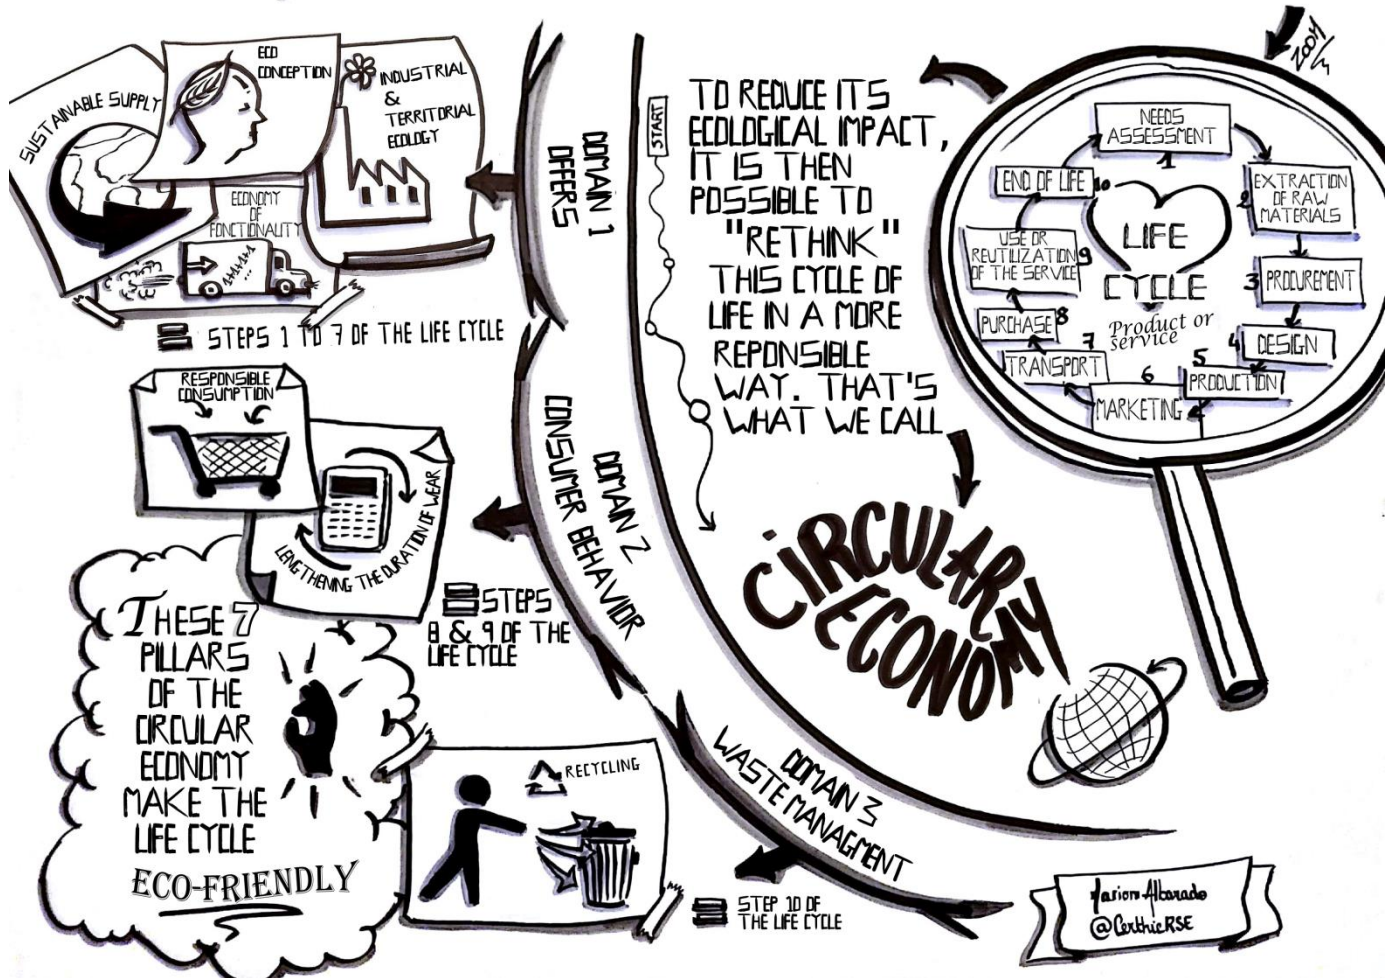 ZOOM
NEEDS
ASSESSMENT
1
2
EXTRACTION
OF RAW
MATERIALS
3
PROCUREMENT
4
DESIGN
5
PRODUCTION
6
MARKETING
7
TRANSPORT
PURCHASE 8
USE OR
REUTILIZATION
OF THE SERVICE
9
END OF LIFE 10
LIFE
CYCLE
Product or
service
START
TO REDUCE ITS
ECOLOGICAL IMPACT,
IT IS THEN
POSSIBLE TO
"RETHINK"
THIS CYCLE OF
LIFE IN A MORE
REPONSIBLE
WAY. THAT'S
WHAT WE CALL
CIRCULARY
ECONOMY
DOMAIN 1
OFFERS
SUSTAINABLE SUPPLY
ECO
CONCEPTION
INDUSTRIAL
&
TERRITORIAL
ECOLOGY
ECONOMY
OF
FONCTIONALITY
= STEPS 1 TO 7 OF THE LIFE CYCLE
DOMAIN 2
CONSUMER BEHAVIOR
RESPONSIBLE
CONSUMPTION
LENGTHENING THE DURATION OF WEAR
= STEPS
8 & 9 OF THE
LIFE CYCLE
DOMAIN 3
WASTE MANAGMENT
RECYCLING
= STEP 10 OF
THE LIFE CYCLE
THESE 7
PILLARS
OF THE
CIRCULAR
ECONOMY
MAKE THE
LIFE CYCLE
ECO-FRIENDLY
Marion Albarado
@CerthieRSE